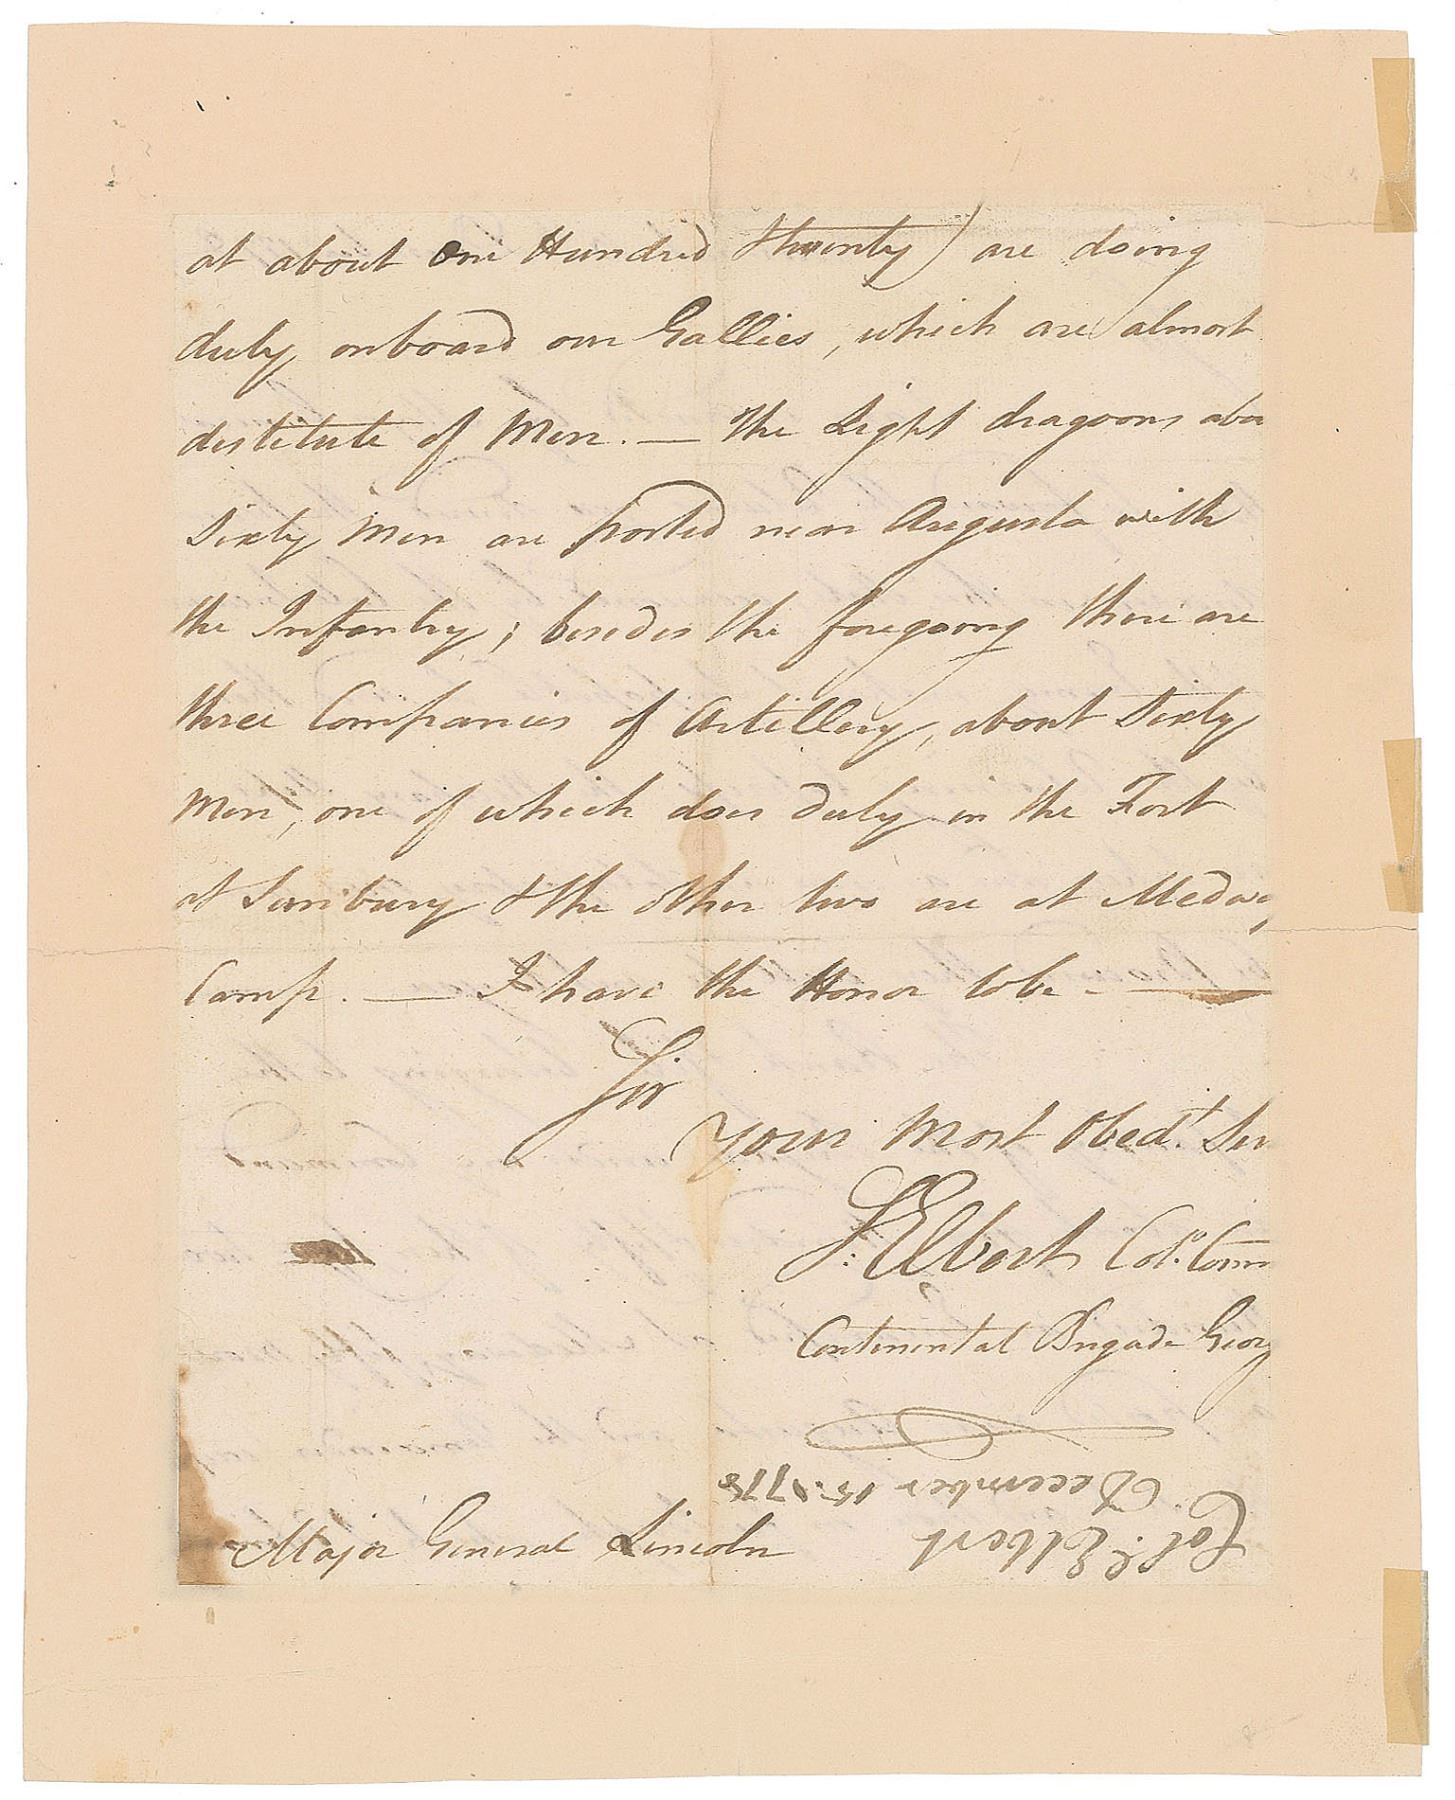 at about One Hundred & twenty) are doing
duty onboard our Gallies, which are almost
destitute of Men. — The Light dragoons abou
Sixty Men are posted near Augusta with
the Infantry; besides the foregoing there are
three Companies of Artillery, about Sixty
Men, one of which does duty in the Fort
at Sunbury & the other two are at Medway
Camp. — I have the Honor to be —
Sir
Your Most Obedt. Ser
S: Elbert Colo. Comm
Continental Brigade Georg
Major General Lincoln
Col: Elbert
December 15. 1778